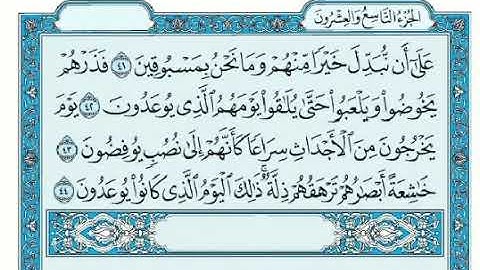 الجُزْءُ التَّاسِعُ وَالعِشْرُونَ
عَلَىٰٓ أَن نُّبَدِّلَ خَيْرًا مِّنْهُمْ وَمَا نَحْنُ بِمَسْبُوقِينَ ٤١ فَذَرْهُمْ
يَخُوضُوا۟ وَيَلْعَبُوا۟ حَتَّىٰ يُلَٰقُوا۟ يَوْمَهُمُ ٱلَّذِى يُوعَدُونَ ٤٢ يَوْمَ
يَخْرُجُونَ مِنَ ٱلْأَجْدَاثِ سِرَاعًا كَأَنَّهُمْ إِلَىٰ نُصُبٍ يُوفِضُونَ ٤٣
خَٰشِعَةً أَبْصَٰرُهُمْ تَرْهَقُهُمْ ذِلَّةٌ ۚ ذَٰلِكَ ٱلْيَوْمُ ٱلَّذِى كَانُوا۟ يُوعَدُونَ ٤٤